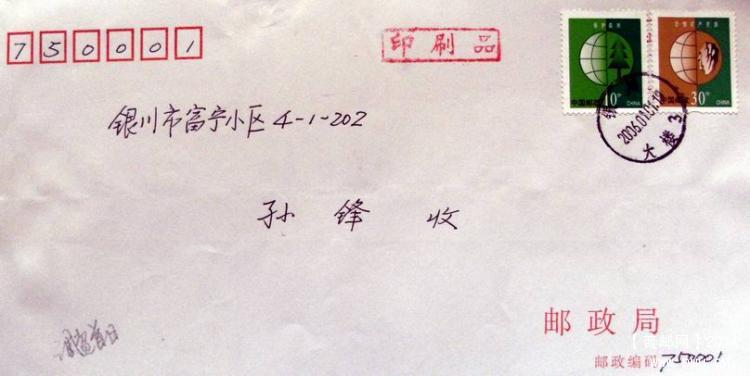 750001
印刷品
保护森林
中国邮政 10分 CHINA
中国邮政 30分 CHINA
2006.01.01.12
大楼3
银川市富宁小区4-1-202
孙锋 收
邮政局
邮政编码 750001